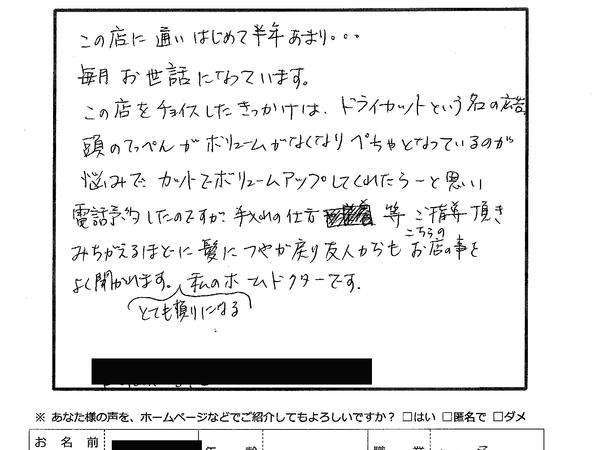 この店に通いはじめて半年あまり・・・
毎月お世話になっています。
この店をチョイスしたきっかけは、ドライカットという名の広告
頭のてっぺんがボリュームがなくなりペちゃとなっているのが
悩みで カットでボリュームアップしてくれたらーと思い
電話予約したのですが 手入れの仕方 等 ご指導頂き
みちがえるほどに髪につやが戻り友人からも こちらの お店の事を
よく聞かれます。私のホームドクターです。
とても頼りになる
※ あなた様の声を、ホームページなどでご紹介してもよろしいですか? □はい □匿名で □ダメ
お名前 年齢 職業